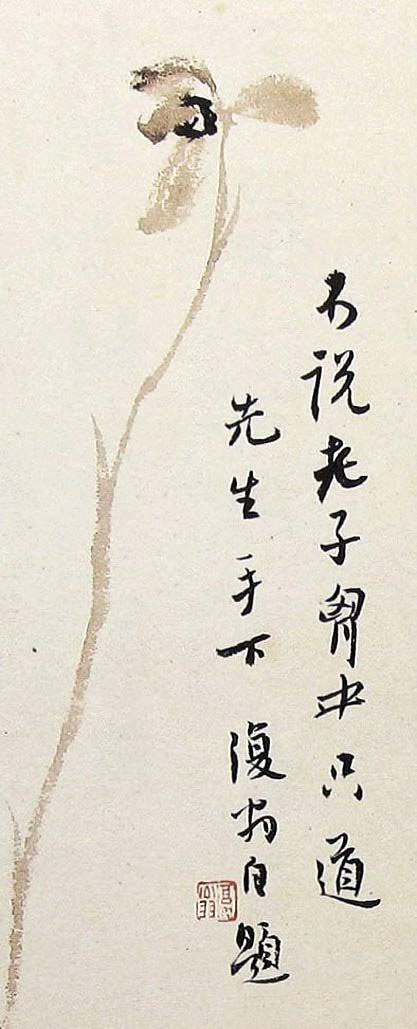 不说老子胷中只道
先生手下 復翁自題